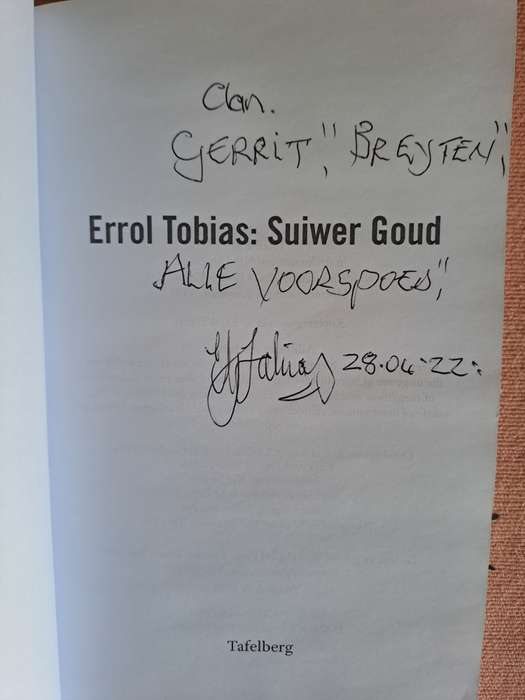 Aan.
GERRIT," BREYTEN",
Errol Tobias: Suiwer Goud
ALLE VOORSPOED",
E Tobias 28.04.22.
Tafelberg